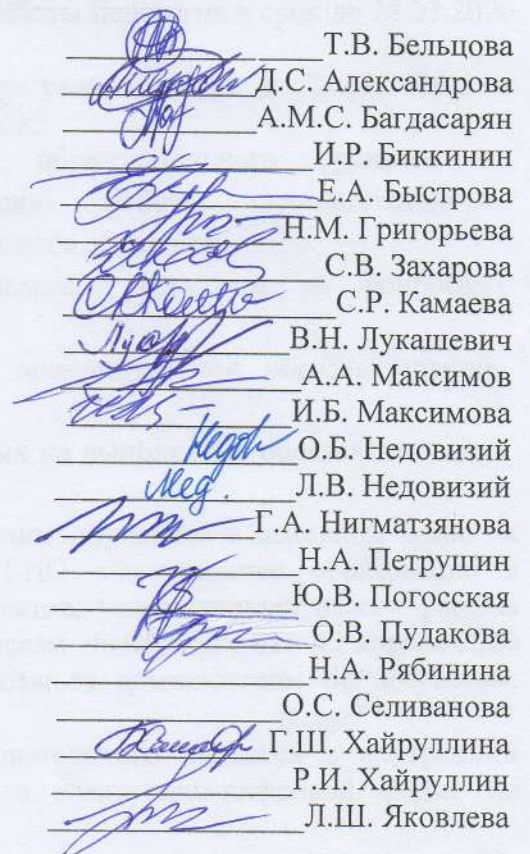 Т.В. Бельцова
Д.С. Александрова
А.М.С. Багдасарян
И.Р. Биккинин
Е.А. Быстрова
Н.М. Григорьева
С.В. Захарова
С.Р. Камаева
В.Н. Лукашевич
А.А. Максимов
И.Б. Максимова
О.Б. Недовизий
Л.В. Недовизий
Г.А. Нигматзянова
Н.А. Петрушин
Ю.В. Погосская
О.В. Пудакова
Н.А. Рябинина
О.С. Селиванова
Г.Ш. Хайруллина
Р.И. Хайруллин
Л.Ш. Яковлева